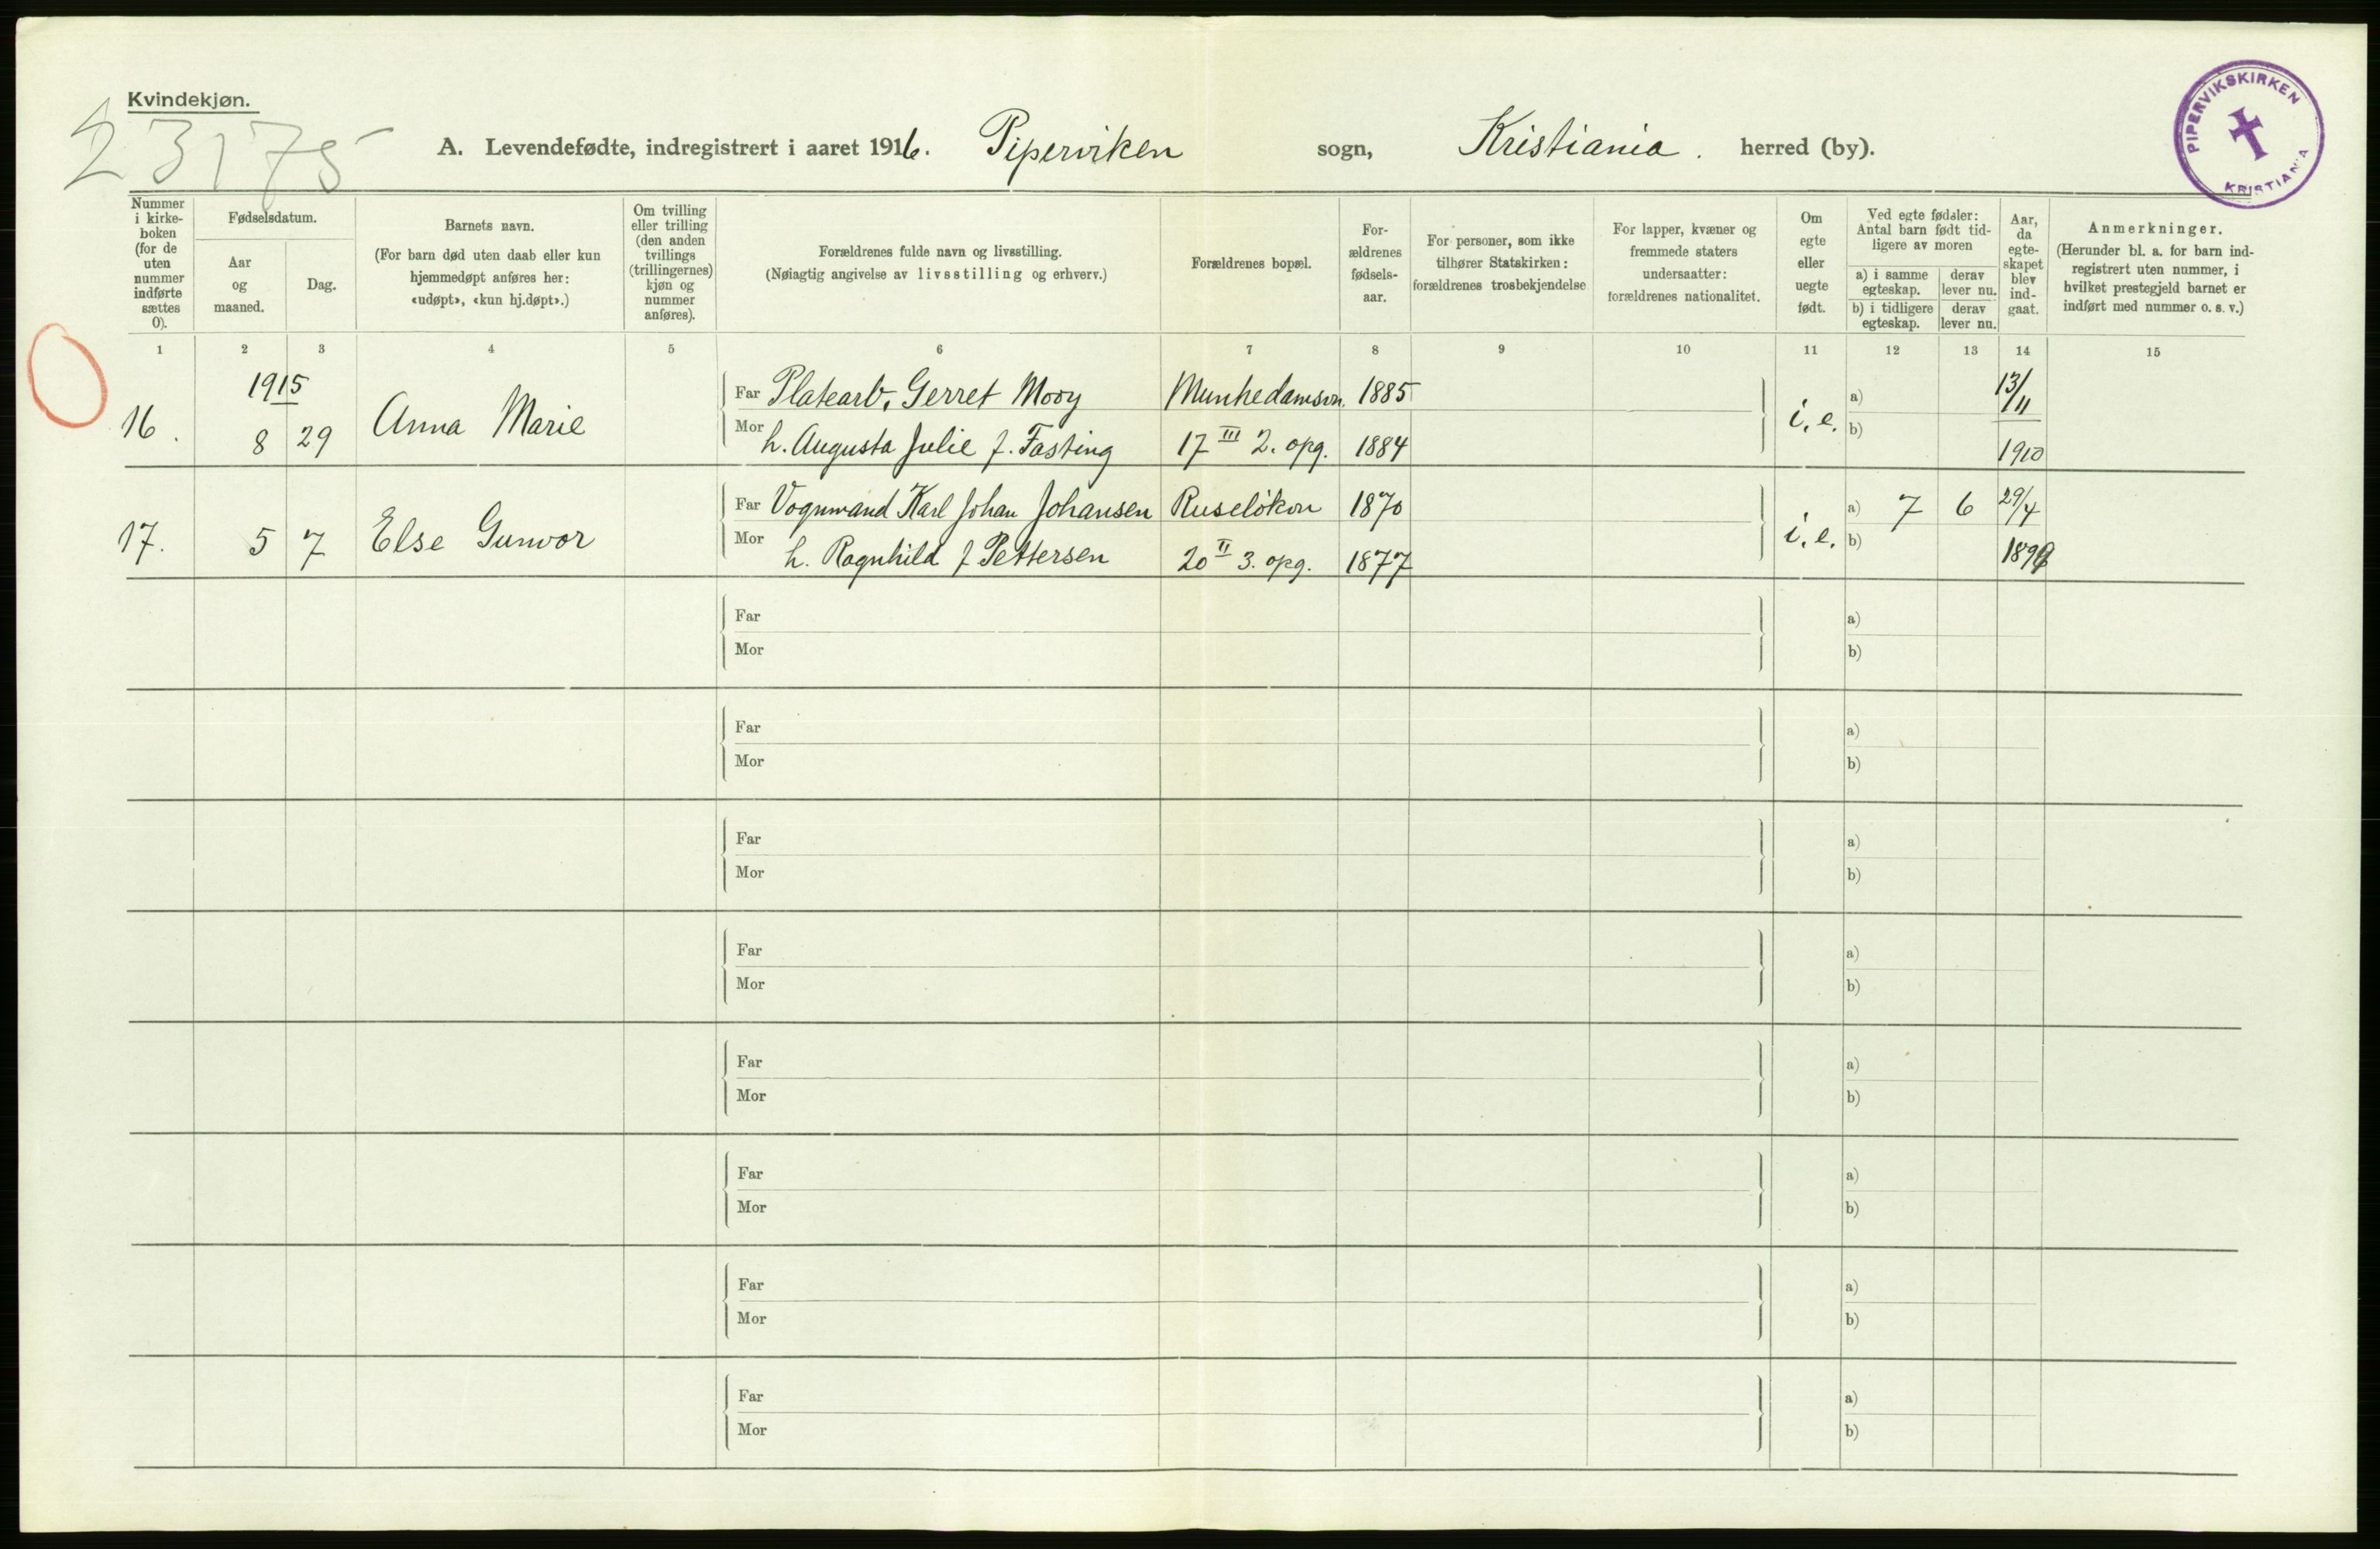 Kvindekjøn.
23175
A. Levendefødte, indregistrert i aaret 1916. Piperviken sogn, Kristiania. herred (by).
PIPERVIKSKIRKEN
KRISTIANIA
Nummer i kirkeboken (for de uten nummer indførte sættes 0).
Fødselsdatum.
Aar og maaned.
Dag.
Barnets navn.
(For barn død uten daab eller kun hjemmedøpt anføres her: «udøpt», «kun hj.døpt».)
Om tvilling eller trilling (den anden tvillings (trillingernes) kjøn og nummer anføres).
Forældrenes fulde navn og livsstilling.
(Nøiagtig angivelse av livsstilling og erhverv.)
Forældrenes bopæl.
For-ældrenes fødsels-aar.
For personer, som ikke tilhører Statskirken: forældrenes trosbekjendelse
For lapper, kvæner og fremmede staters undersaatter: forældrenes nationalitet.
Om egte eller uegte født.
Ved egte fødsler: Antal barn født tidligere av moren
a) i samme egteskap.
derav lever nu.
b) i tidligere egteskap.
derav lever nu.
Aar, da egte-skapet blev ind-gaat.
Anmerkninger.
(Herunder bl. a. for barn ind-registrert uten nummer, i hvilket prestegjeld barnet er indført med nummer o. s. v.)
1 2 3 4 5 6 7 8 9 10 11 12 13 14 15
1915
16. 8 29 Anna Marie
Far Platearb. Gerret Mooy Munkedamsvn. 1885
Mor h. Augusta Julie f. Fasting 17 III 2. opg. 1884
i. e. a) b) 13/11 1910
17. 5 7 Else Gunvor
Far Vognmand Karl Johan Johansen Ruseløkvn 1870
Mor h. Ragnhild f Pettersen 20 II 3. opg. 1877
i. e. a) 7 6 29/4
b)
Far a)
Mor b)
Far a)
Mor b)
Far a)
Mor b)
Far a)
Mor b)
Far a)
Mor b)
Far a)
Mor b)
Far a)
Mor b)
Far a)
Mor b)